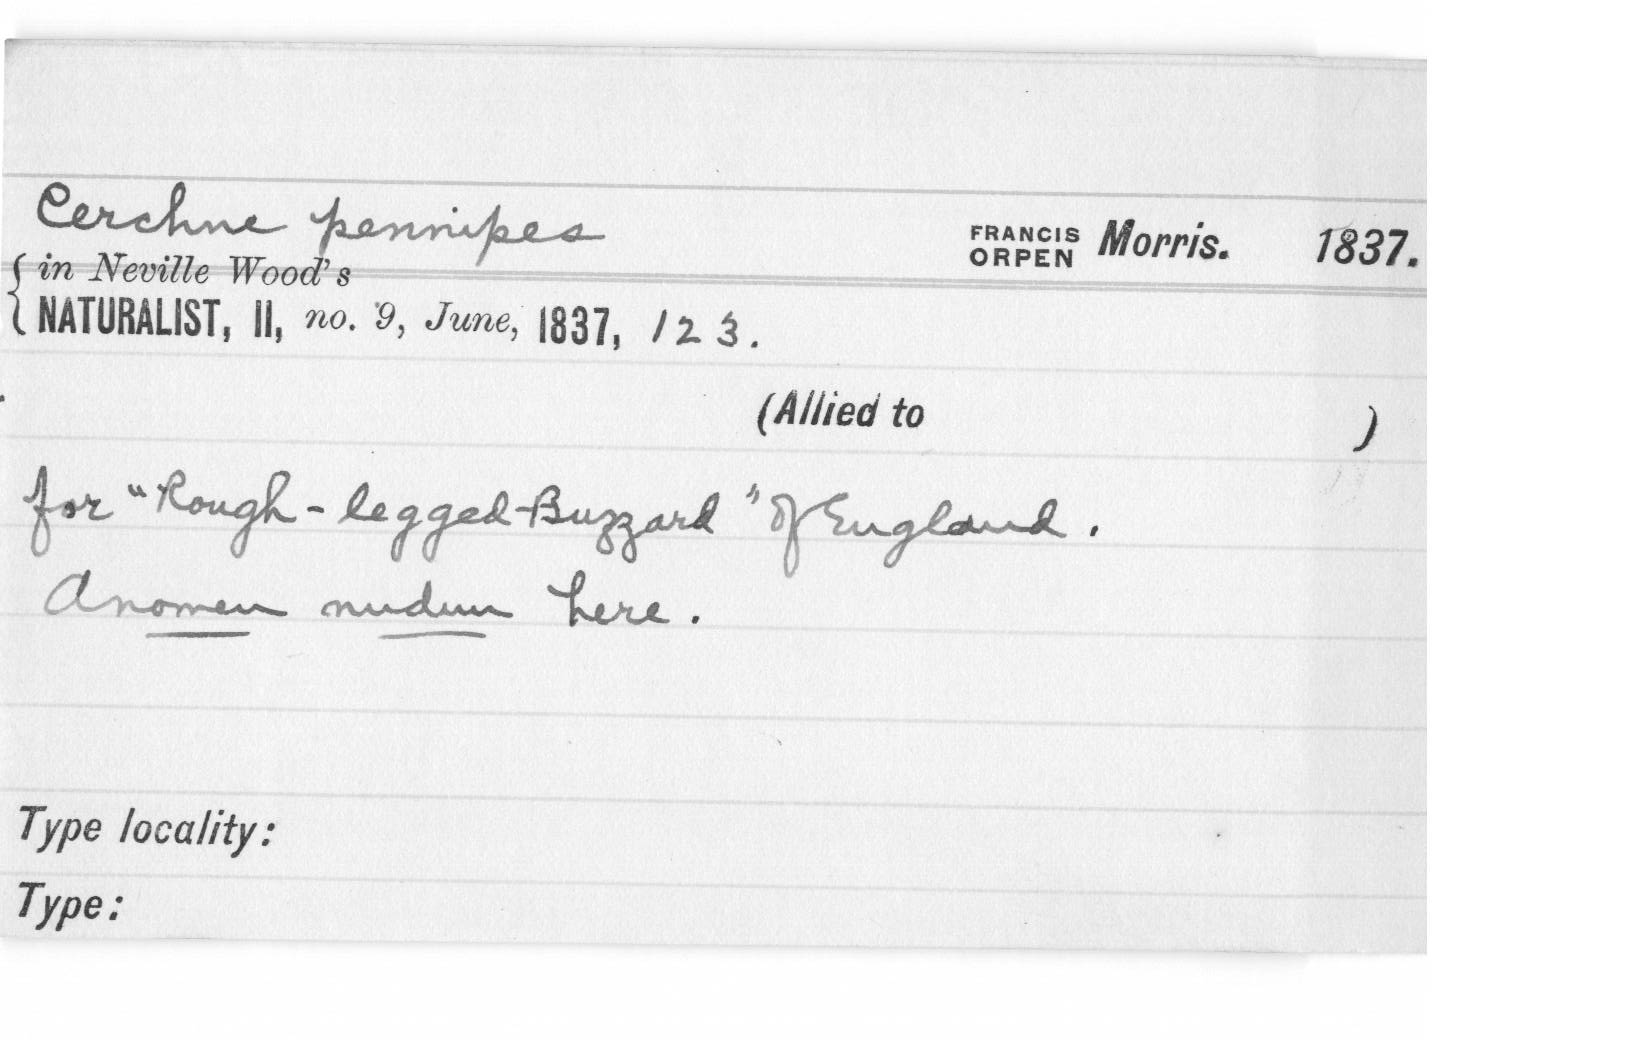 Cerchne pennipes FRANCIS ORPEN Morris. 1837.
{ in Neville Wood's
{ NATURALIST, II, no. 9, June, 1837, 123.
(Allied to )
for "Rough-legged-Buzzard" of England.
A nomen nudum here.
Type locality:
Type: